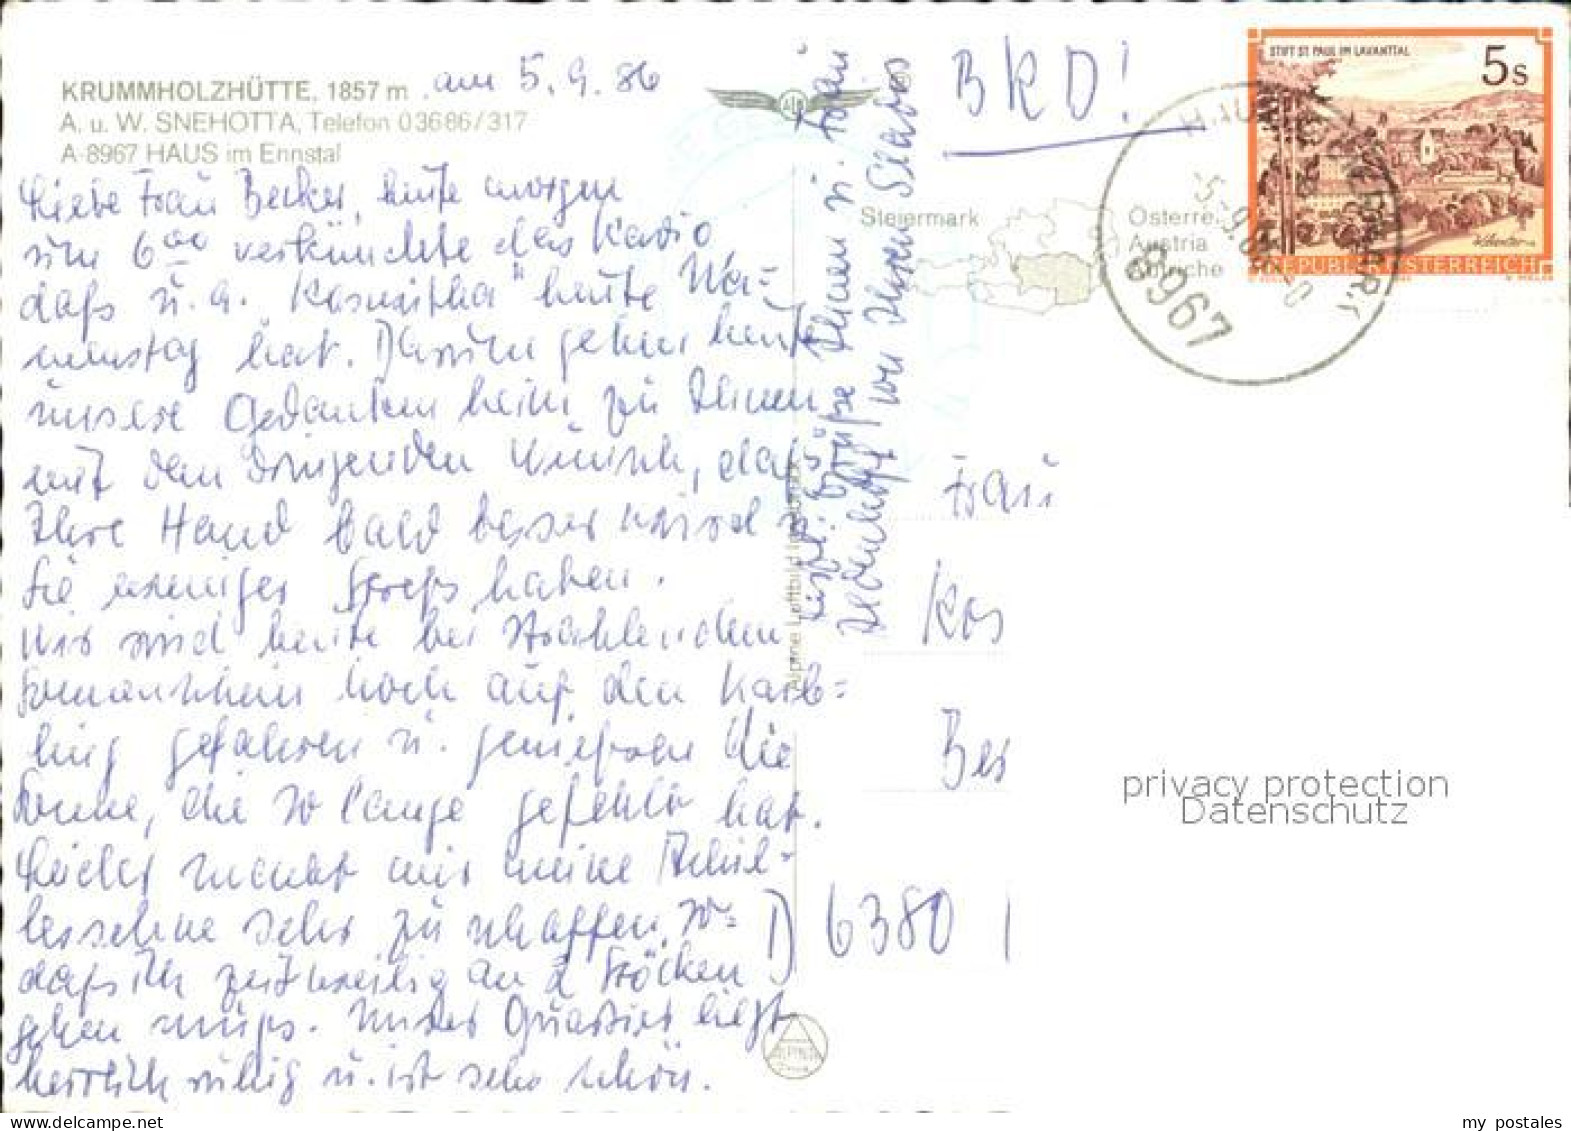 KRUMMHOLZHÜTTE, 1857 m am 5.9.86
A. u. W. SNEHOTTA, Telefon 03686/317
A-8967 HAUS im Ennstal
Liebe Frau Becker, heute morgen
um 6⁰⁰ verkündete das Radio
daß u. a. "Roswitha" heute Na=
menstag hat. Darum gehen heute
unsere Gedanken heim zu Ihnen
mit dem dringenden Wunsch, daß
Ihre Hand bald besser wird u.
Sie weniger Streß haben.
Wir sind heute bei strahlendem
Sonnenschein hoch auf den Kaib=
ling gefahren u. genießen die
Sonne, die so lange gefehlt hat.
Leider macht mir meine Achil=
lessehne sehr zu schaffen, so=
daß ich zeitweilig an 2 Stöcken
gehen muß. Unser Quartier liegt
herrlich ruhig u. ist sehr schön.
Grüße Ihnen u. Frau
von Ihren
Alpine Luftbild Innsbruck
BRD!
Steiermark
Österre
Austria
Autriche
STIFT ST PAUL IM LAVANTTAL
5s
REPUBLIK ÖSTERREICH
8967
Frau
Ros
Bec
D 6380
privacy protection
Datenschutz
my postales